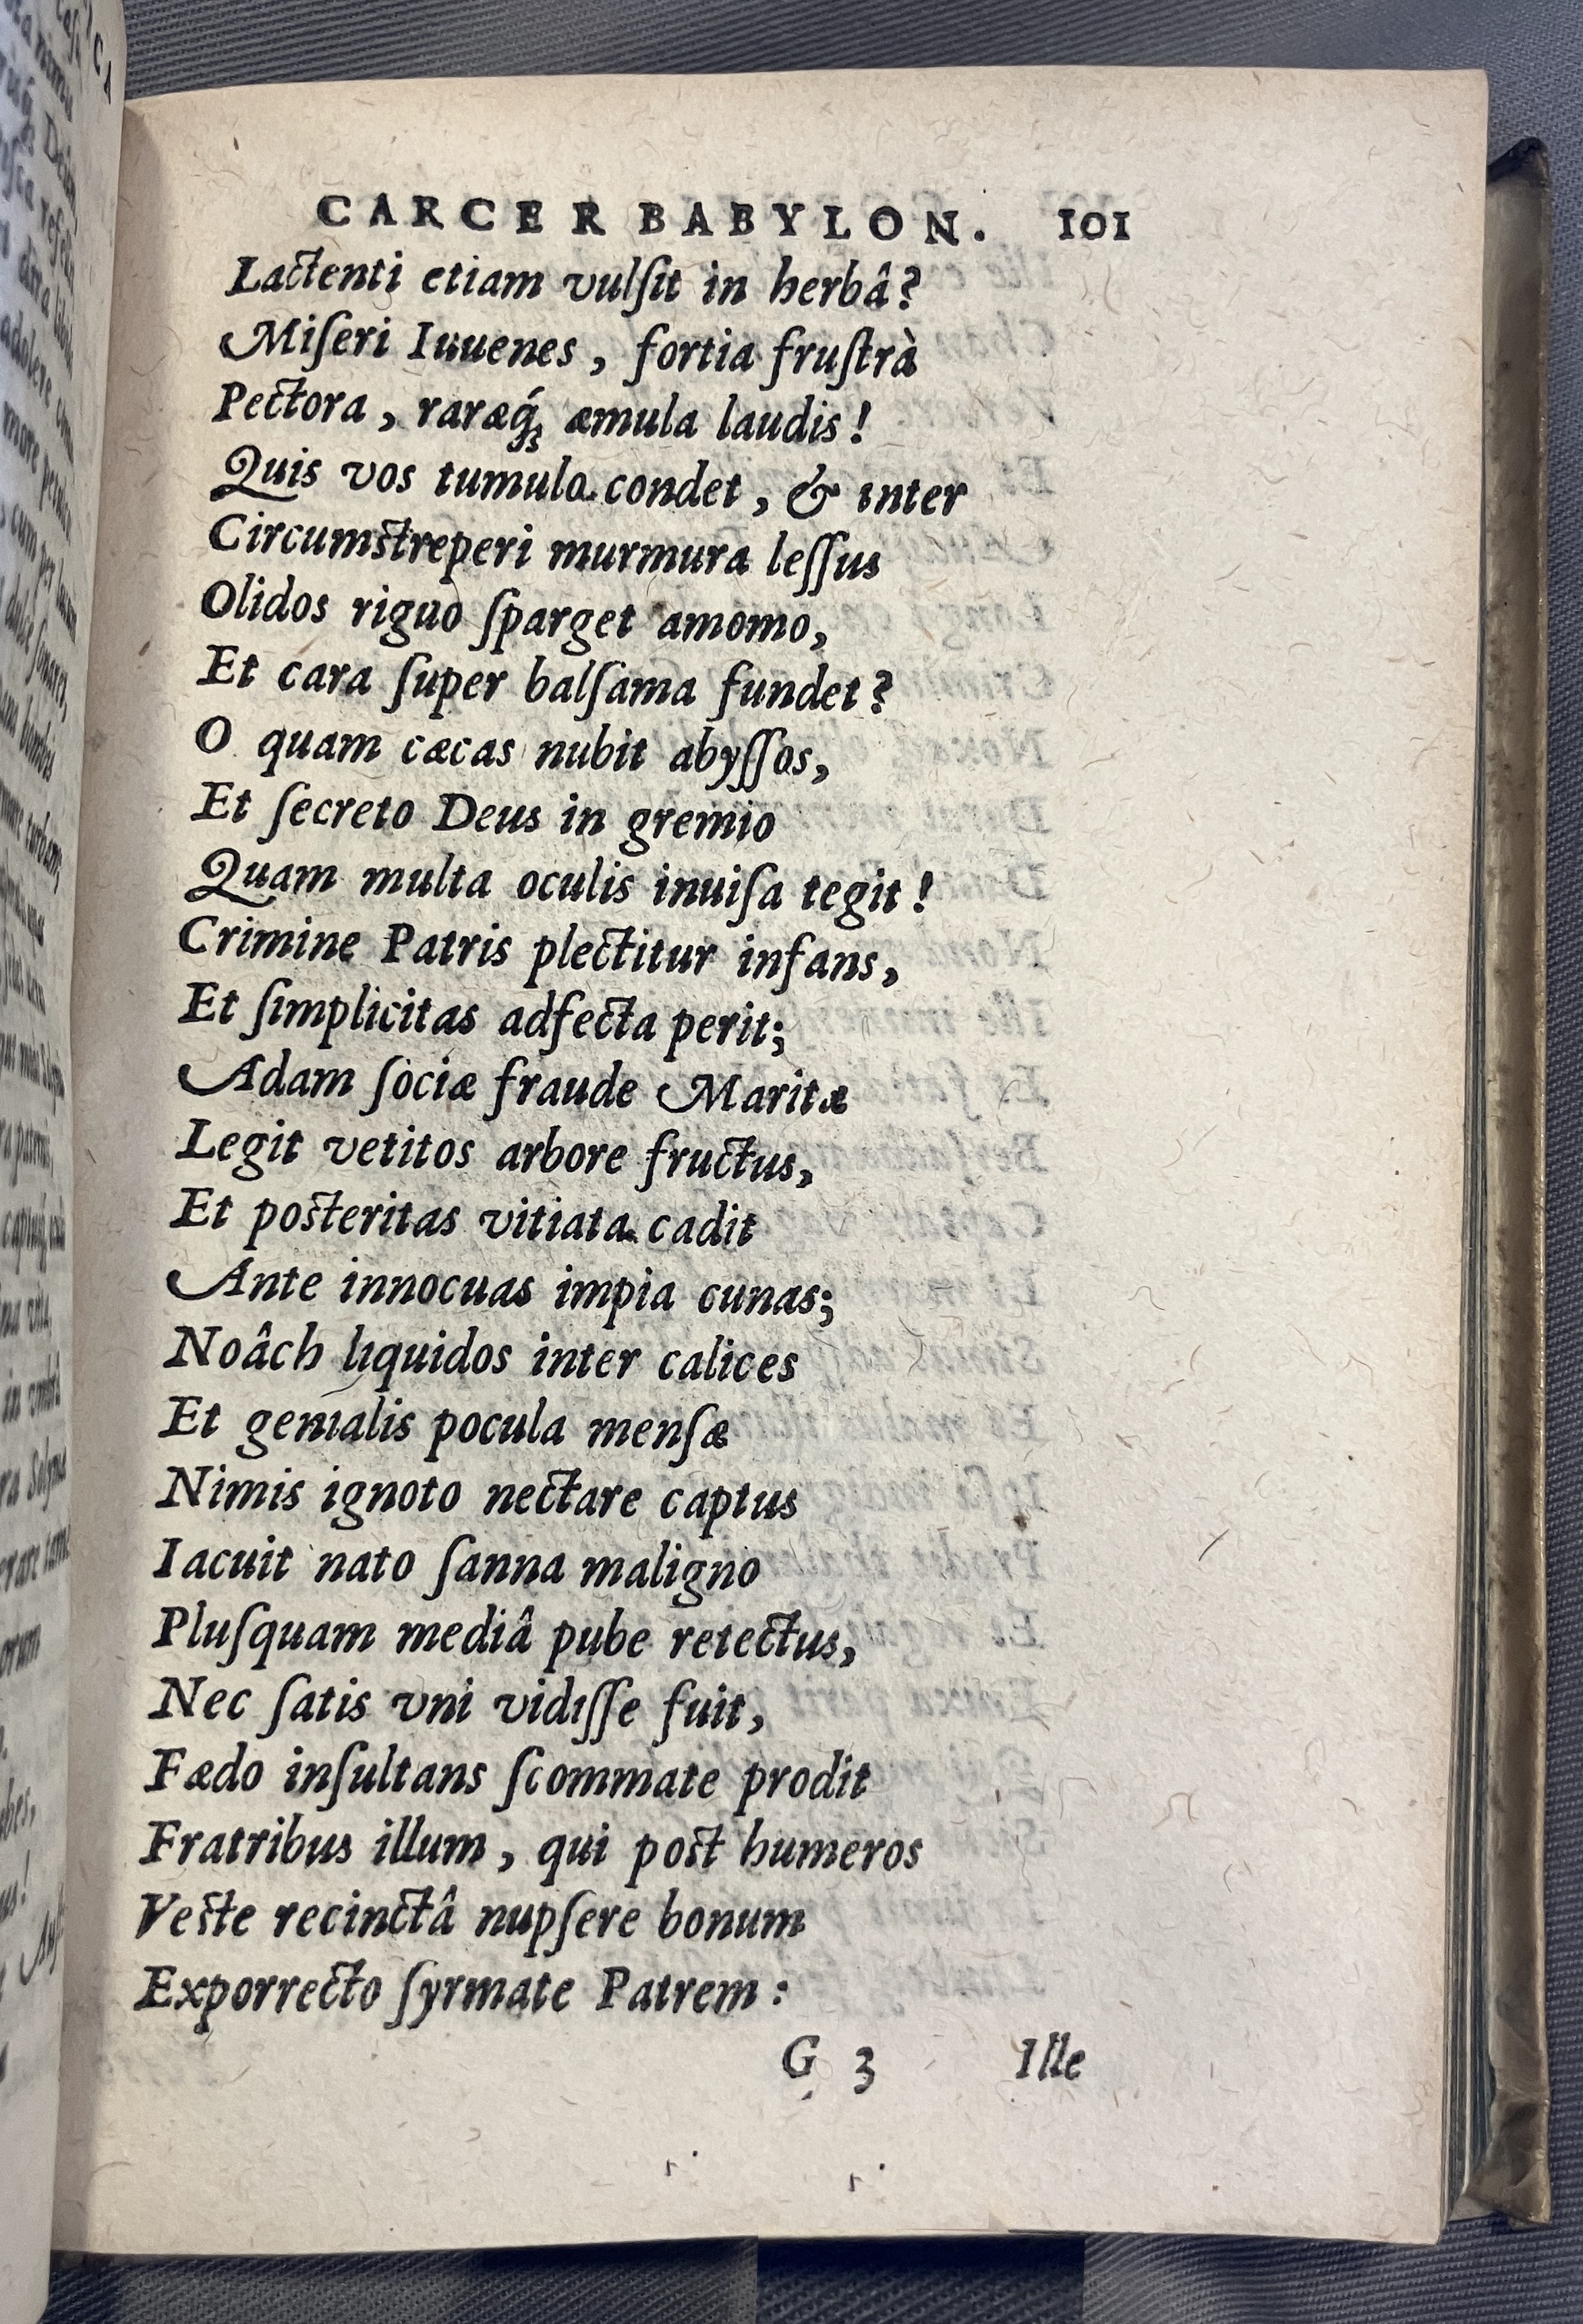 CARCER BABYLON. 101
Lactenti etiam vulſit in herbâ?
Miſeri Iuuenes, fortia fruſtrà
Pectora, raræq́; æmula laudis!
Quis vos tumulo condet, & inter
Circumſtreperi murmura leſſus
Olidos riguo ſparget amomo,
Et cara ſuper balſama fundet?
O quam cæcas nubit abyſſos,
Et ſecreto Deus in gremio
Quam multa oculis inuiſa tegit!
Crimine Patris plectitur infans,
Et ſimplicitas adfecta perit;
Adam ſociæ fraude Maritæ
Legit vetitos arbore fructus,
Et poſteritas vitiata cadit
Ante innocuas impia cunas;
Noâch liquidos inter calices
Et genialis pocula menſæ
Nimis ignoto nectare captus
Iacuit nato ſanna maligno
Pluſquam mediâ pube retectus,
Nec ſatis vni vidiſſe fuit,
Fædo inſultans ſcommate prodit
Fratribus illum, qui poſt humeros
Veſte recinctâ nupſere bonum
Exporrecto ſyrmate Patrem:
G 3 Ille